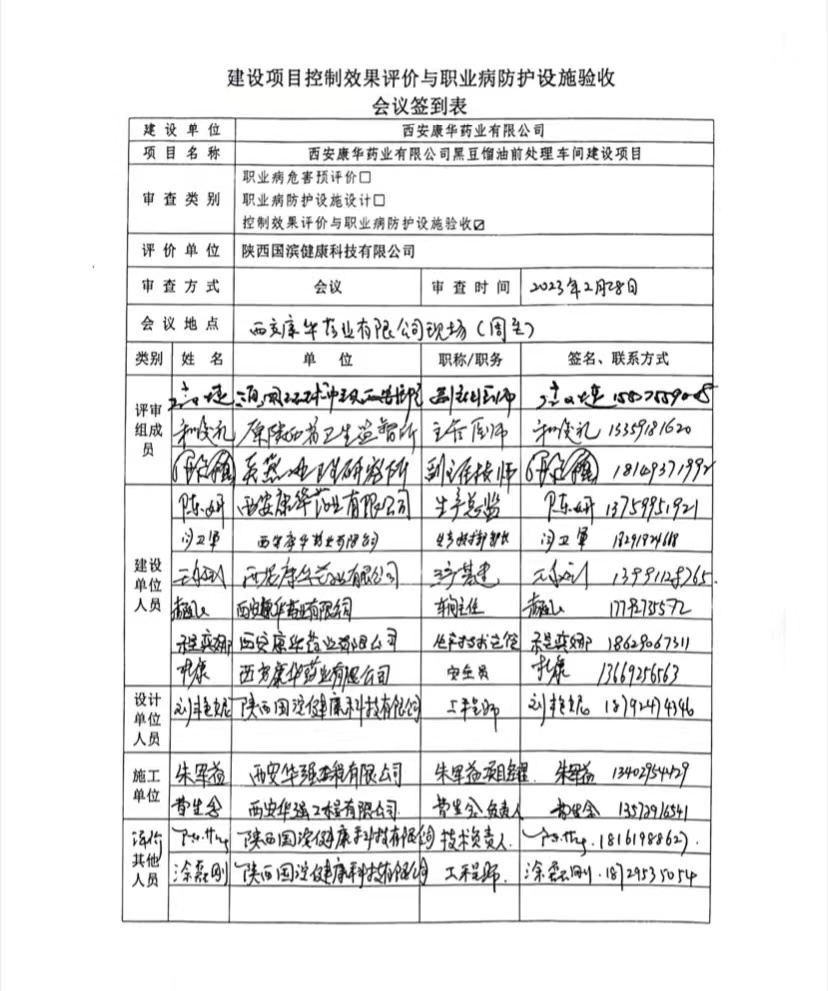 建设项目控制效果评价与职业病防护设施验收
会议签到表
建设单位 西安康华药业有限公司
项目名称 西安康华药业有限公司黑豆馏油前处理车间建设项目
审查类别
职业病危害预评价□
职业病防护设施设计□
控制效果评价与职业病防护设施验收☑
评价单位 陕西国滨健康科技有限公司
审查方式 会议 审查时间 2023年2月28日
会议地点 西安康华药业有限公司现场(周至)
类别 姓名 单位 职称/职务 签名、联系方式
评审组成员
原陕西省卫生监督所 主任医师 13359181620
副主任技师 18149371992
建设单位人员
陈妍 西安康华药业有限公司 生产总监 陈妍 13759951921
闫卫军 西安康华药业有限公司 闫卫军 18291924618
西安康华药业有限公司
西安康华药业有限公司 车间主任 17792735572
西安康华药业有限公司 18629067311
杜康 西安康华药业有限公司 安全员 杜康 13669256563
设计单位人员
刘艳妮 陕西国滨健康科技有限公司 工程师 刘艳妮 18792474346
施工单位
朱军益 西安华强工程有限公司 朱军益 朱军益 13402954429
曹生会 西安华强工程有限公司 曹生会 负责人 曹生会 13572916541
评价其他人员
陕西国滨健康科技有限公司 技术负责人 18161988627
涂磊刚 陕西国滨健康科技有限公司 工程师 涂磊刚 18729535054